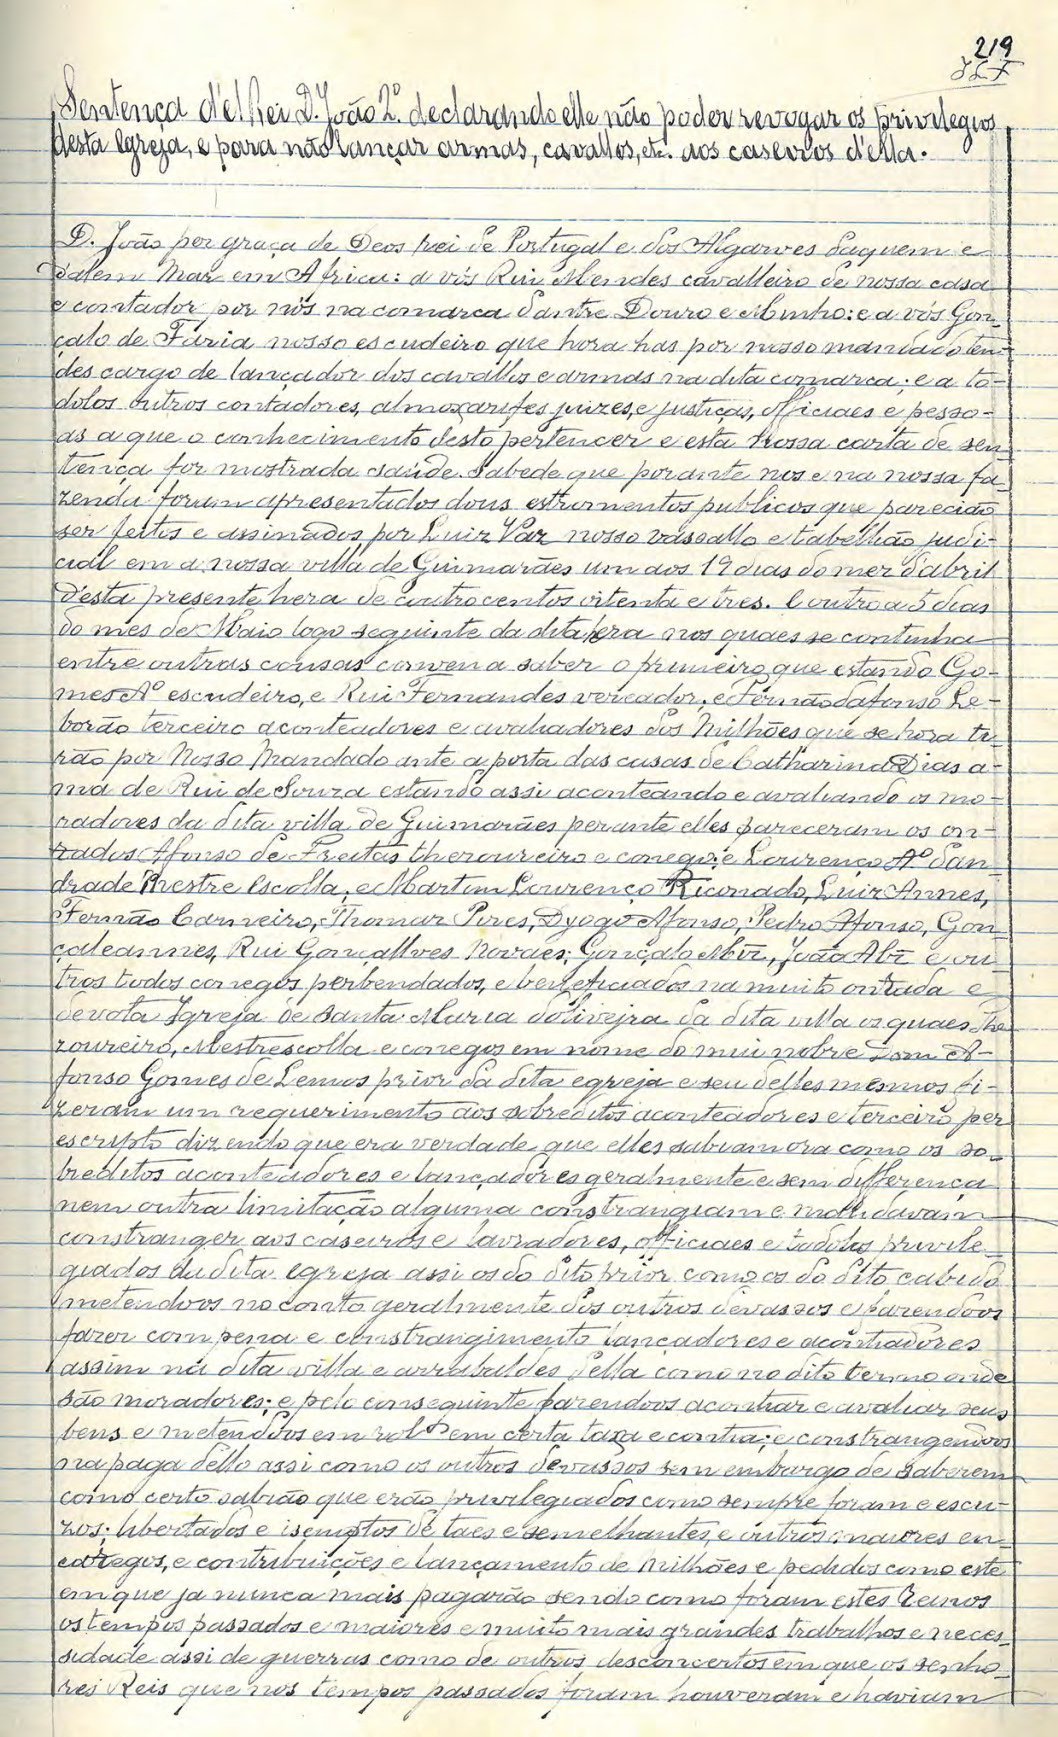 219
Sentença d'el Rei D. João 2º declarando elle não poder revogar os privilegios
desta Igreja, e para não lançar armas, cavallos, etc. aos caseiros d'ella.
D. João per graça de Deos Rei de Portugal e dos Algarves daquem e
dalem Mar em Africa: a vós Rui Mendes cavalleiro de nossa casa
e contador por nós na comarca dantre Douro e Minho: e a vós Gon-
çalo de Faria nosso escudeiro que hora has por nosso mandado ten-
des cargo de lançador dos cavallos e armas na dita comarca; e a to-
dolos outros contadores, almoxarifes juizes, e justiças, officiaes e pesso-
as a que o conhecimento desto pertencer e esta nossa carta de sen
tença for mostrada saude. Sabede que perante nos e na nossa fa-
zenda foram apresentados dous estromentos publicos que parecião
ser feitos e assinados por Luiz Vaz nosso vassallo e tabellião judi-
cial em a nossa villa de Guimarães um aos 19 dias do mez dabril
desta presente hera de coutrocentos oitenta e tres. E outro a 5 dias
do mes de Maio logo seguinte da dita hera nos quaes se continha
entre outras cousas convem a saber o primeiro que estando Go-
mes Aº escudeiro, e Rui Fernandes vereador, e Fernão dafonso Le-
borão terceiro aconteadores e avaliadores dos Milhões que se hora ti-
rão por Nosso Mandado ante a porta das casas de Catharina Dias a-
ma de Rui de Souza estando assi aconteando e avaliando os mo-
radores da dita villa de Guimarães perante elles pareceram os on-
rados Afonso de Freitas thezoureiro e conego; e Lourenço Aº dan-
drade Mestre Escolla; e Martim Lourenço Riconado, Luiz Annes,
Fernão Carneiro, Thomaz Pires, Dyogo Afonso, Pedro Afonso, Gon
çaleannes, Rui Gonçallves Novaes; Gonçalo Miz, João Alz e ou-
tros todos conegos perbendados, e beneficiados na muito onrada e
devota Igreja de Santa Maria dolivejra da dita villa os quaes The
zoureiro, Mestrescolla e conegos em nome do mui nobre Dom A-
fonso Gomes de Lemos prior da dita egreja e seu delles mesmos fi-
zeram um requerimento aos sobreditos aconteadores e terceiro per
escripto dizendo que era verdade que elles sabiam ora como os so-
breditos aconteadores e lançadores geralmente e sem differença
nem outra limitação alguma constrangiam e mandavam
constranger aos caseiros e lavradores, officiaes e todolos privile-
giados da dita egreja assi os do dito prior como os do dito cabido
metendoos no conto geralmente dos outros devassos e fazendoos
fazer com pena e constrangimento lançadores e acontiadores
assim na dita villa e arrabaldes della como no dito termo onde
são moradores; e pelo conseguinte fazendoos acontiar e avaliar seus
bens e metendoos em rol em certa taxa e contia; e constrangendoos
na paga dello assi como os outros devassos sem embargo de saberem
como certo sabião que erão privilegiados como sempre foram e escu-
zos; libertados e isemptos de taes e semelhantes, e outros maiores en-
caregos, e contribuições e lançamento de Milhões e pedidos como este
em que ja nunca mais pagarão sendo como foram estes Reinos
os tempos passados e maiores e muito mais grandes trabalhos e neces-
sidade assi de guerras como de outros desconcertos em que os senho-
res Reis que nos tempos passados foram houveram e haviam